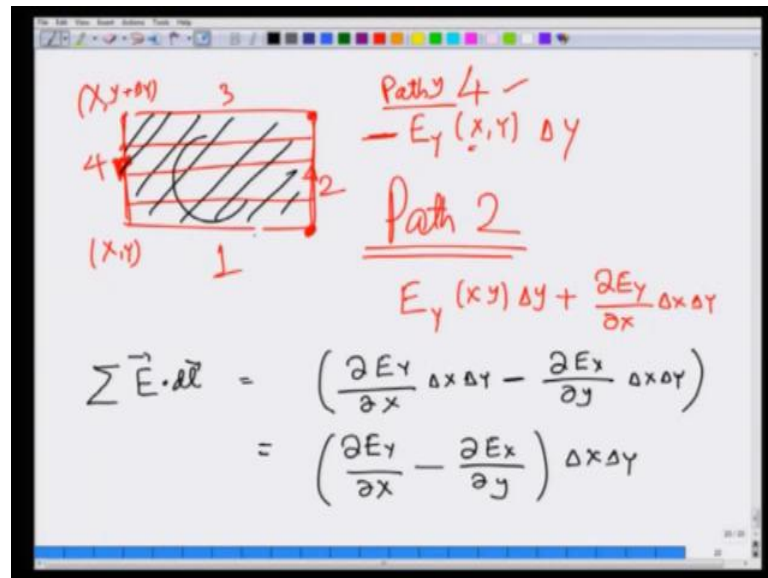 File Edit View Insert Actions Tools Help
(X,Y+ΔY) 3
Path 4
4
- E_Y (X,Y) ΔY
2
Path 2
(X,Y) 1
E_Y (x y) Δy + ∂E_Y/∂x Δx ΔY
∑ E⃗·dl⃗ = (∂E_Y/∂x Δx ΔY - ∂E_x/∂y Δx ΔY)
= (∂E_Y/∂x - ∂E_x/∂y) Δx ΔY